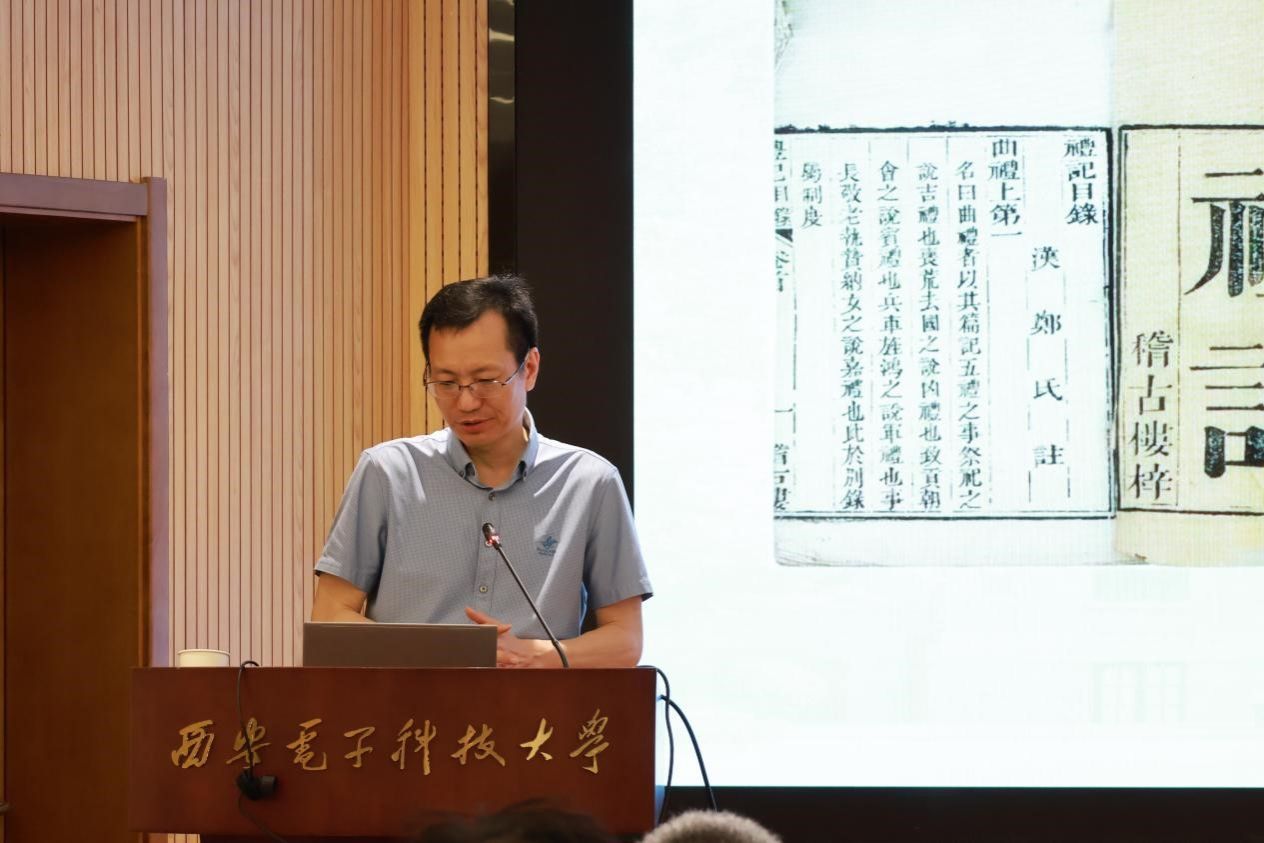 稽古樓梓
禮記目錄
漢鄭氏註
曲禮上第一
名曰曲禮者以其篇記五禮之事祭祀之
說吉禮也喪荒去國之說凶禮也致貢朝
會之說賓禮也兵車旌鴻之說軍禮也事
長敬老執贄納女之說嘉禮也此於別錄
屬制度
西安電子科技大學